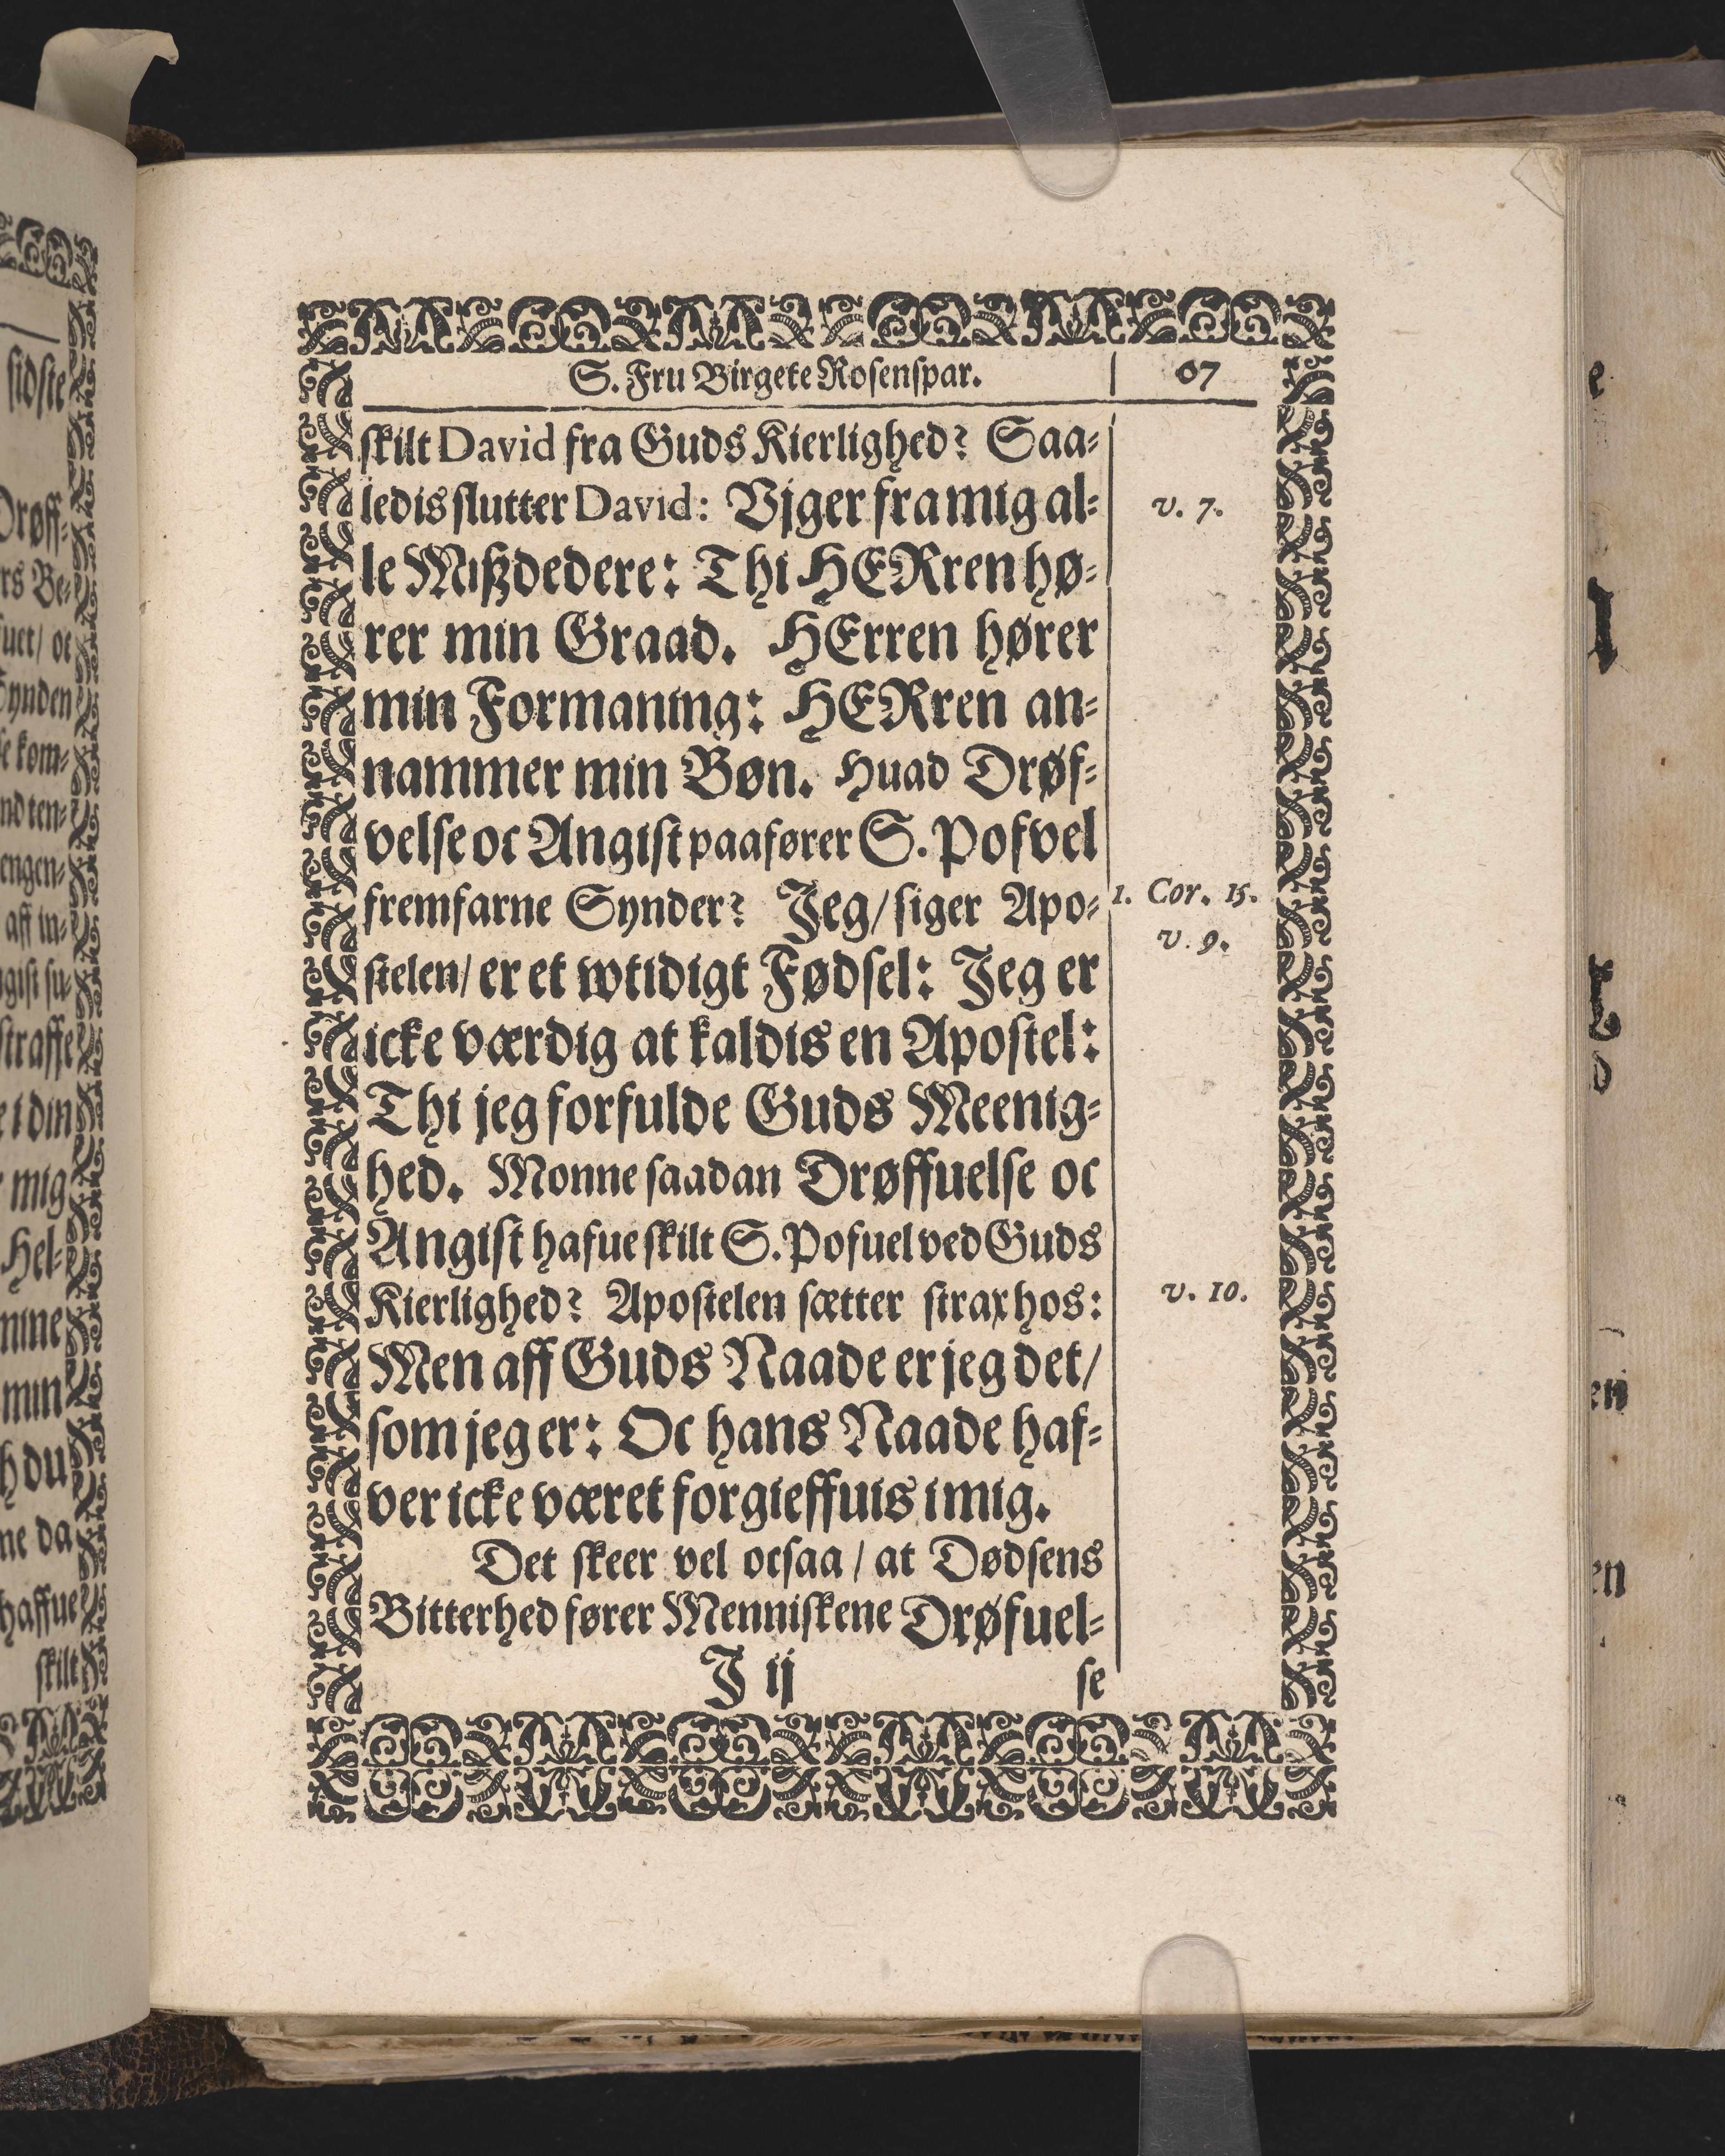 S. Fru Birgete Rosenspar. 67
skilt David fra Guds Kierlighed? Saa-
ledis slutter David: Vjger fra mig al-
v. 7.
le Mißdedere: Thi HERren hø-
rer min Graad. HErren hører
min Formaning: HERren an-
nammer min Bøn. Huad Drøf-
velse oc Angist paafører S. Pofvel
fremfarne Synder? Jeg/ siger Apo-
1. Cor. 15.
v. 9.
stelen/ er et wtidigt Fødsel: Jeg er
icke værdig at kaldis en Apostel:
Thi jeg forfulde Guds Meenig-
hed. Monne saadan Drøffuelse oc
Angist hafue skilt S. Pofuel ved Guds
Kierlighed? Apostelen sætter strax hos:
v. 10.
Men aff Guds Naade er jeg det/
som jeg er: Oc hans Naade haf-
ver icke været forgieffuis i mig.
Det skeer vel ocsaa / at Dødsens
Bitterhed fører Menniskene Drøfuel-
J ij se